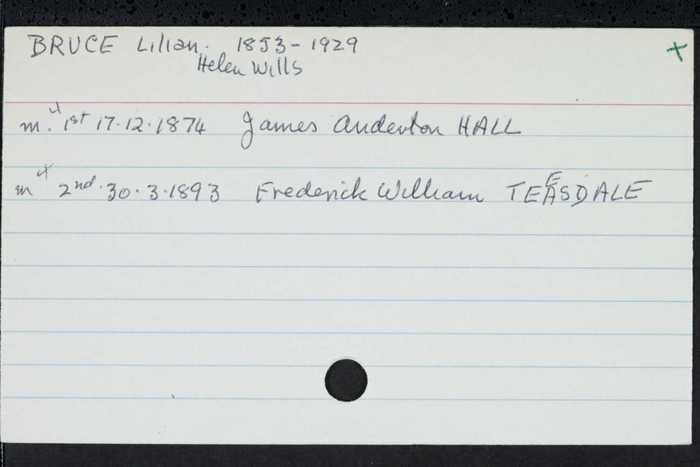 BRUCE Lilian. 1853-1929
Helen Wills
m. 1st 17.12.1874 James Anderton HALL
m 2nd. 30.3.1893 Frederick William TEESDALE